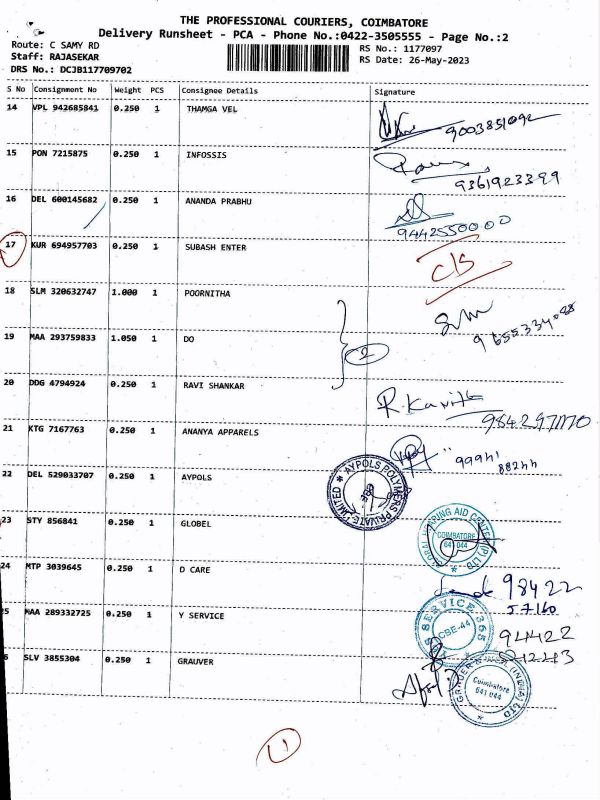 THE PROFESSIONAL COURIERS, COIMBATORE
Delivery Runsheet - PCA - Phone No.:0422-3505555 - Page No.:2
Route: C SAMY RD RS No.: 1177097
Staff: RAJASEKAR RS Date: 26-May-2023
DRS No.: DCJB117709702
S No Consignment No Weight PCS Consignee Details Signature
14 VPL 942685841 0.250 1 THAMGA VEL
9003851092
15 PON 7215875 0.250 1 INFOSSIS
9361923399
16 DEL 600145682 0.250 1 ANANDA PRABHU
9442550000
17 KUR 694957703 0.250 1 SUBASH ENTER
C/S
18 SLM 320632747 1.000 1 POORNITHA
19 MAA 293759833 1.050 1 DO
2
20 DDG 4794924 0.250 1 RAVI SHANKAR
R. Kavitha
21 KTG 7167763 0.250 1 ANANYA APPARELS
22 DEL 529033707 0.250 1 AYPOLS
AYPOLS POLYMERS PRIVATE LIMITED
23 STY 856841 0.250 1 GLOBEL
HEARING AID
COIMBATORE
641 044
24 MTP 3039645 0.250 1 D CARE
98422
57160
25 MAA 289332725 0.250 1 Y SERVICE
SERVICE 365
CBE-44
94422
26 SLV 3855304 0.250 1 GRAUVER
(INDIA)
Coimbatore
641 044